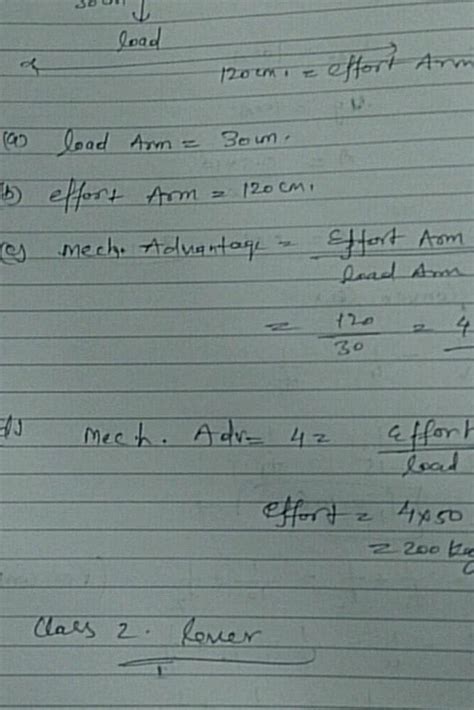 30cm ↓
load
120cm. = effort Arm
(a) load Arm = 30cm.
b) effort Arm = 120cm.
(c) Mech. Advantage = Effort Arm
load Arm
= 120 = 4
30
d) Mech. Adv = 4 = Effort
load
effort = 4x50
= 200 kg
Class 2. lever